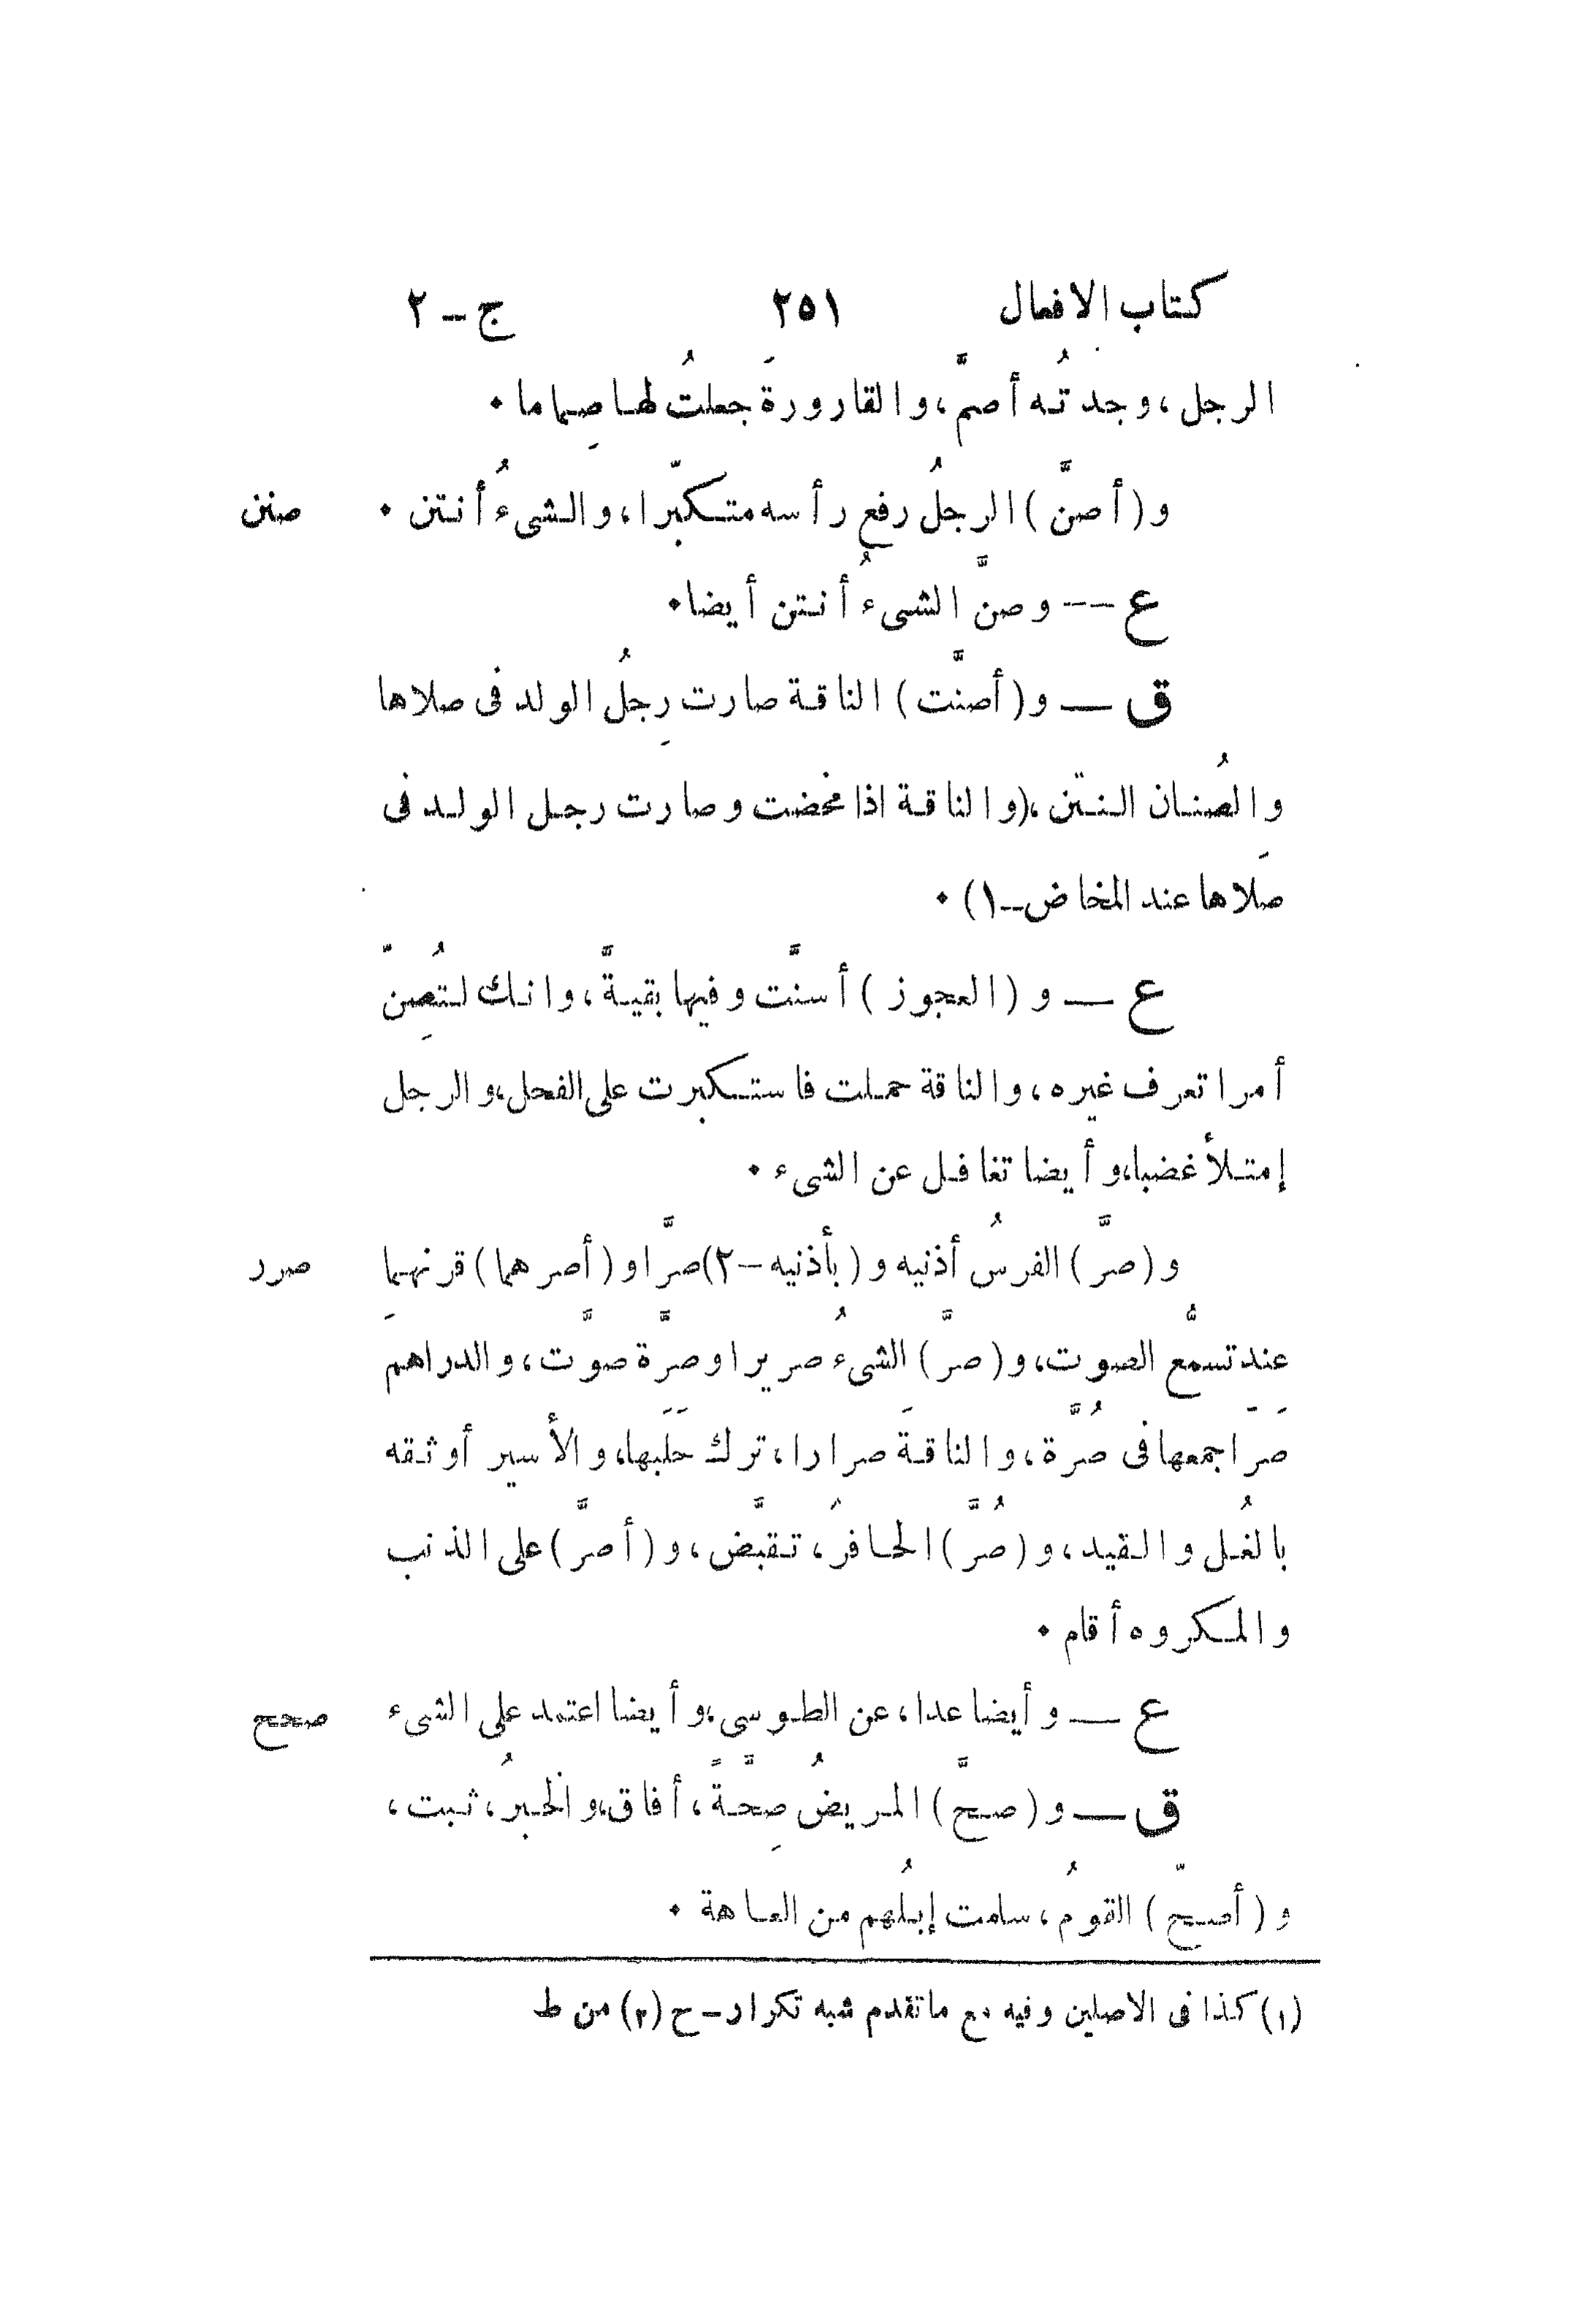 كتاب الافعال ٢٥١ ج – ٢
الرجل، وجدتُه أصمَّ، والقارورةَ جعلتُ لها صِماما ٠
و (أصنَّ) الرجلُ رفع رأسه متكبّرا، والشىءُ أنتن ٠ صنن
ع -- وصنَّ الشىءُ أنتن أيضا٠
ق — و (أصنَّت) الناقة صارت رِجلُ الولد فى صلاها
والصُنان النتن، (والناقة اذا مخضت وصارت رجل الولد فى
صَلاها عند المخاض–١) ٠
ع — و (العجوز) أسنَّت وفيها بقيةَّ، وانك لتُصِنّ
أمرا تعرف غيره، والناقة حملت فاستكبرت على الفحل، والرجل
إمتلأ غضبا، وأيضا تغافل عن الشىء ٠
و (صرَّ) الفرسُ أذنيه و (بأذنيه –٢) صرَّا و (أصرهما) قرنهما صرر
عندَ تسمُّع الصوت، و (صرَّ) الشىءُ صريرا وصرَّة صوَّت، والدراهمَ
صَراَ جمعها فى صُرَّة، والناقةَ صرارا، ترك حَلَبها، والأسير أوثقه
بالغُل والقيد، و (صُرَّ) الحافرُ، تقبَّض، و (أصرَّ) على الذنب
والمكروه أقام ٠
ع — وأيضا عدا، عن الطوسى، وأيضا اعتمد على الشىء صحح
ق — و (صحَّ) المريضُ صِحَّةً، أفاق، والخبرُ، ثبت،
و (أصحّ) القومُ، سلمت إبلُهم من العاهة ٠
(١) كذا فى الاصلين وفيه مع ماتقدم شبه تكرار – ح (٢) من ط